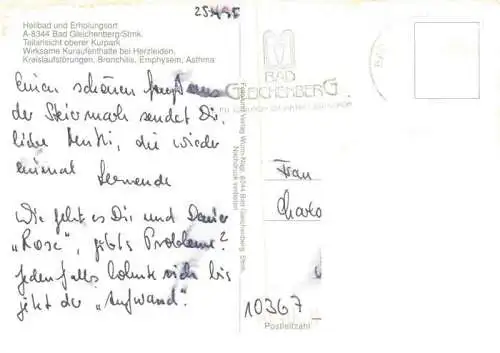 25.
Heilbad und Erholungsort
A-8344 Bad Gleichenberg/Stmk.
Teilansicht oberer Kurpark
Wirksame Kuraufenthalte bei Herzleiden,
Kreislaufstörungen, Bronchitis, Emphysem, Asthma
Einen schönen aus
der Steiermark sendet Dir,
liebe die wieder
einmal
Wie geht es Dir und Deiner
„Rose", gibts Probleme?
Jedenfalls lohnte sich bis
jetzt der „Aufwand".
Nachdruck verboten!
BAD
GLEICHENBERG
Frau
10367
Postleitzahl